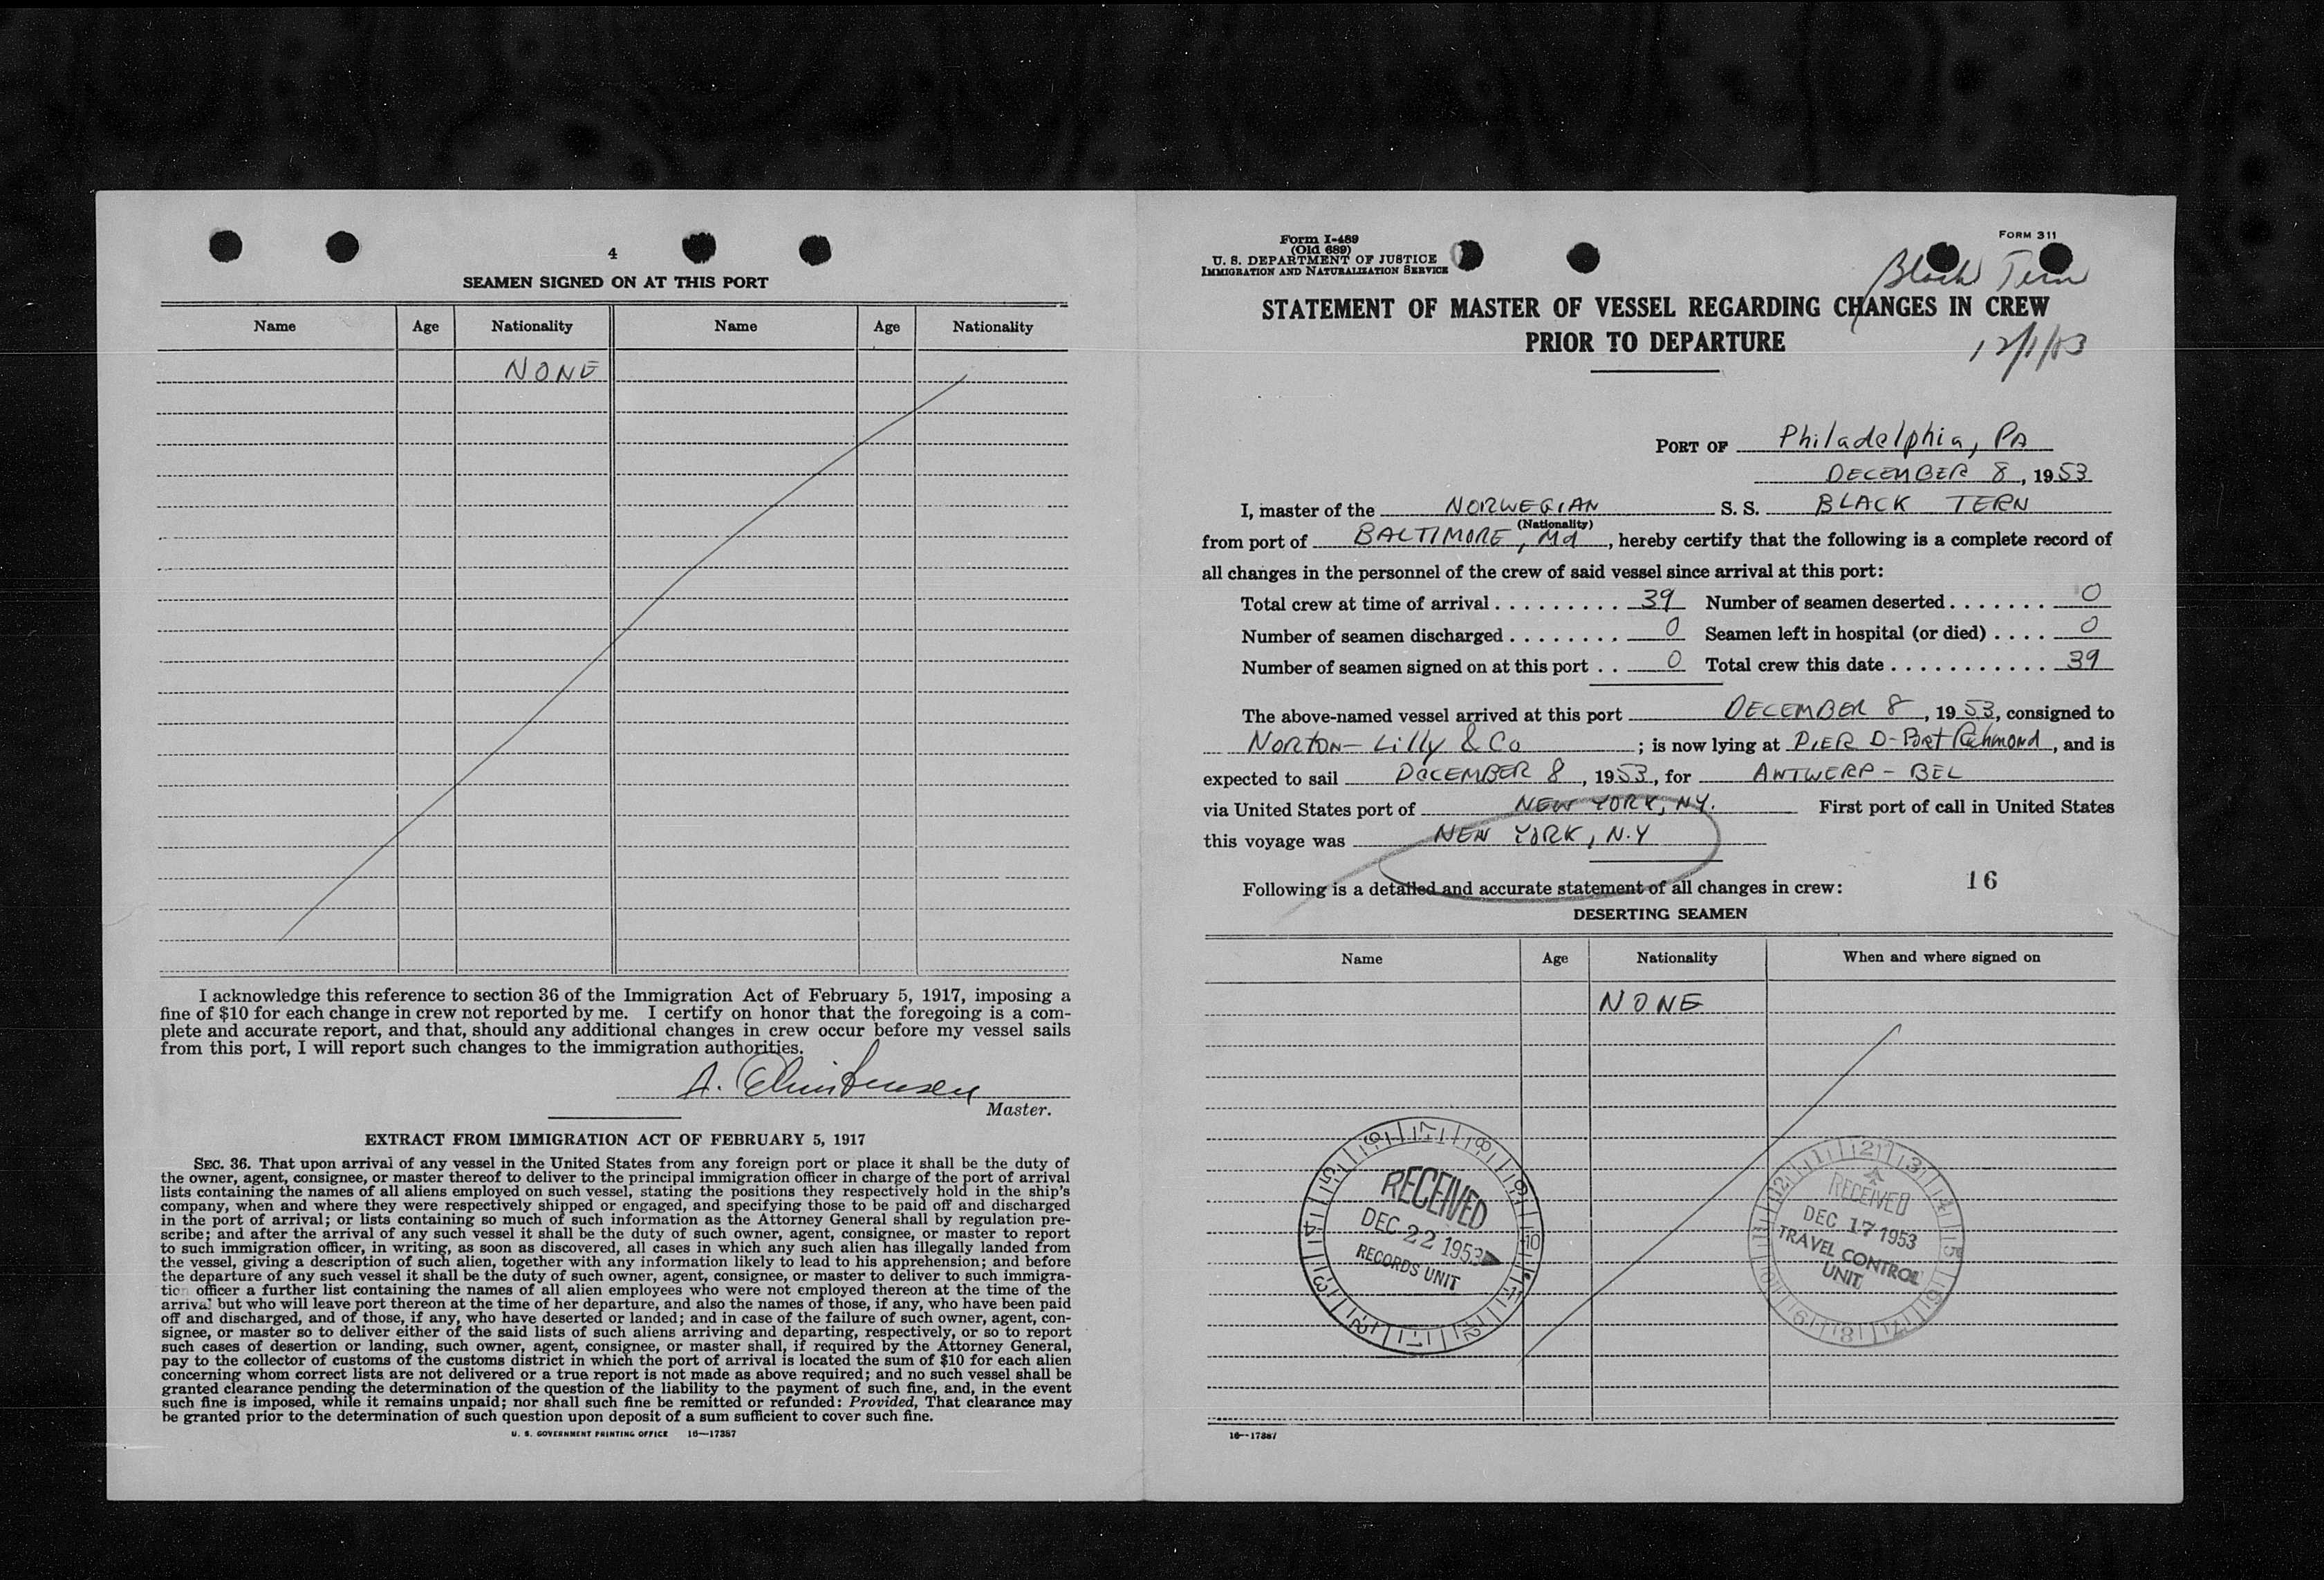 4
SEAMEN SIGNED ON AT THIS PORT
Name Age Nationality Name Age Nationality
NONE
I acknowledge this reference to section 36 of the Immigration Act of February 5, 1917, imposing a
fine of $10 for each change in crew not reported by me. I certify on honor that the foregoing is a com-
plete and accurate report, and that, should any additional changes in crew occur before my vessel sails
from this port, I will report such changes to the immigration authorities.
A. Christensen
Master.
EXTRACT FROM IMMIGRATION ACT OF FEBRUARY 5, 1917
SEC. 36. That upon arrival of any vessel in the United States from any foreign port or place it shall be the duty of
the owner, agent, consignee, or master thereof to deliver to the principal immigration officer in charge of the port of arrival
lists containing the names of all aliens employed on such vessel, stating the positions they respectively hold in the ship's
company, when and where they were respectively shipped or engaged, and specifying those to be paid off and discharged
in the port of arrival; or lists containing so much of such information as the Attorney General shall by regulation pre-
scribe; and after the arrival of any such vessel it shall be the duty of such owner, agent, consignee, or master to report
to such immigration officer, in writing, as soon as discovered, all cases in which any such alien has illegally landed from
the vessel, giving a description of such alien, together with any information likely to lead to his apprehension; and before
the departure of any such vessel it shall be the duty of such owner, agent, consignee, or master to deliver to such immigra-
tion officer a further list containing the names of all alien employees who were not employed thereon at the time of the
arrival but who will leave port thereon at the time of her departure, and also the names of those, if any, who have been paid
off and discharged, and of those, if any, who have deserted or landed; and in case of the failure of such owner, agent, con-
signee, or master so to deliver either of the said lists of such aliens arriving and departing, respectively, or so to report
such cases of desertion or landing, such owner, agent, consignee, or master shall, if required by the Attorney General,
pay to the collector of customs of the customs district in which the port of arrival is located the sum of $10 for each alien
concerning whom correct lists are not delivered or a true report is not made as above required; and no such vessel shall be
granted clearance pending the determination of the question of the liability to the payment of such fine, and, in the event
such fine is imposed, while it remains unpaid; nor shall such fine be remitted or refunded: Provided, That clearance may
be granted prior to the determination of such question upon deposit of a sum sufficient to cover such fine.
U. S. GOVERNMENT PRINTING OFFICE 16—17387
Form I-489
(Old 689)
U. S. DEPARTMENT OF JUSTICE
IMMIGRATION AND NATURALIZATION SERVICE
FORM 311
Black Tern
STATEMENT OF MASTER OF VESSEL REGARDING CHANGES IN CREW
PRIOR TO DEPARTURE
12/1/53
PORT OF Philadelphia, PA
DECEMBER 8, 1953
I, master of the NORWEGIAN S. S. BLACK TERN
(Nationality)
from port of BALTIMORE, Md, hereby certify that the following is a complete record of
all changes in the personnel of the crew of said vessel since arrival at this port:
Total crew at time of arrival . . . . . . . . . 39 Number of seamen deserted . . . . . . . 0
Number of seamen discharged . . . . . . . . 0 Seamen left in hospital (or died) . . . . 0
Number of seamen signed on at this port . . 0 Total crew this date . . . . . . . . . . . . 39
The above-named vessel arrived at this port DECEMBER 8, 1953, consigned to
NORTON-Lilly & Co ; is now lying at PIER D-Port Richmond, and is
expected to sail DECEMBER 8, 1953, for ANTWERP - BEL
via United States port of NEW YORK, NY. First port of call in United States
this voyage was NEW YORK, N.Y
Following is a detailed and accurate statement of all changes in crew: 16
DESERTING SEAMEN
Name Age Nationality When and where signed on
NONE
RECEIVED
DEC 22 1953
RECORDS UNIT
RECEIVED
DEC 17 1953
TRAVEL CONTROL
UNIT
16—17387